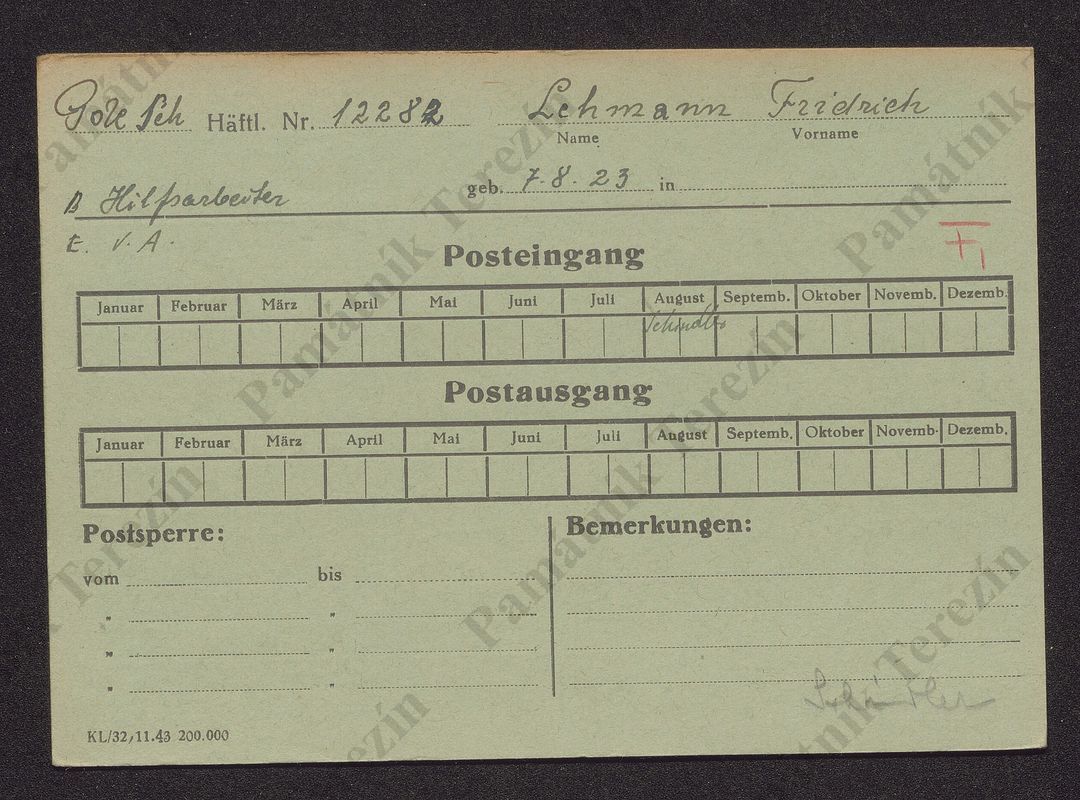 Pole Sch Häftl. Nr. 12282 Lehmann Fridrich
Name Vorname
B Hilfsarbeiter geb. 7.8.23 in
E. V.A.
F1
Posteingang
Januar Februar März April Mai Juni Juli August Septemb. Oktober Novemb. Dezemb.
Schindler
Postausgang
Januar Februar März April Mai Juni Juli August Septemb. Oktober Novemb. Dezemb.
Postsperre: Bemerkungen:
vom bis
" "
" "
" "
Schindler
KL/32/11.43 200.000
Památník Terezín